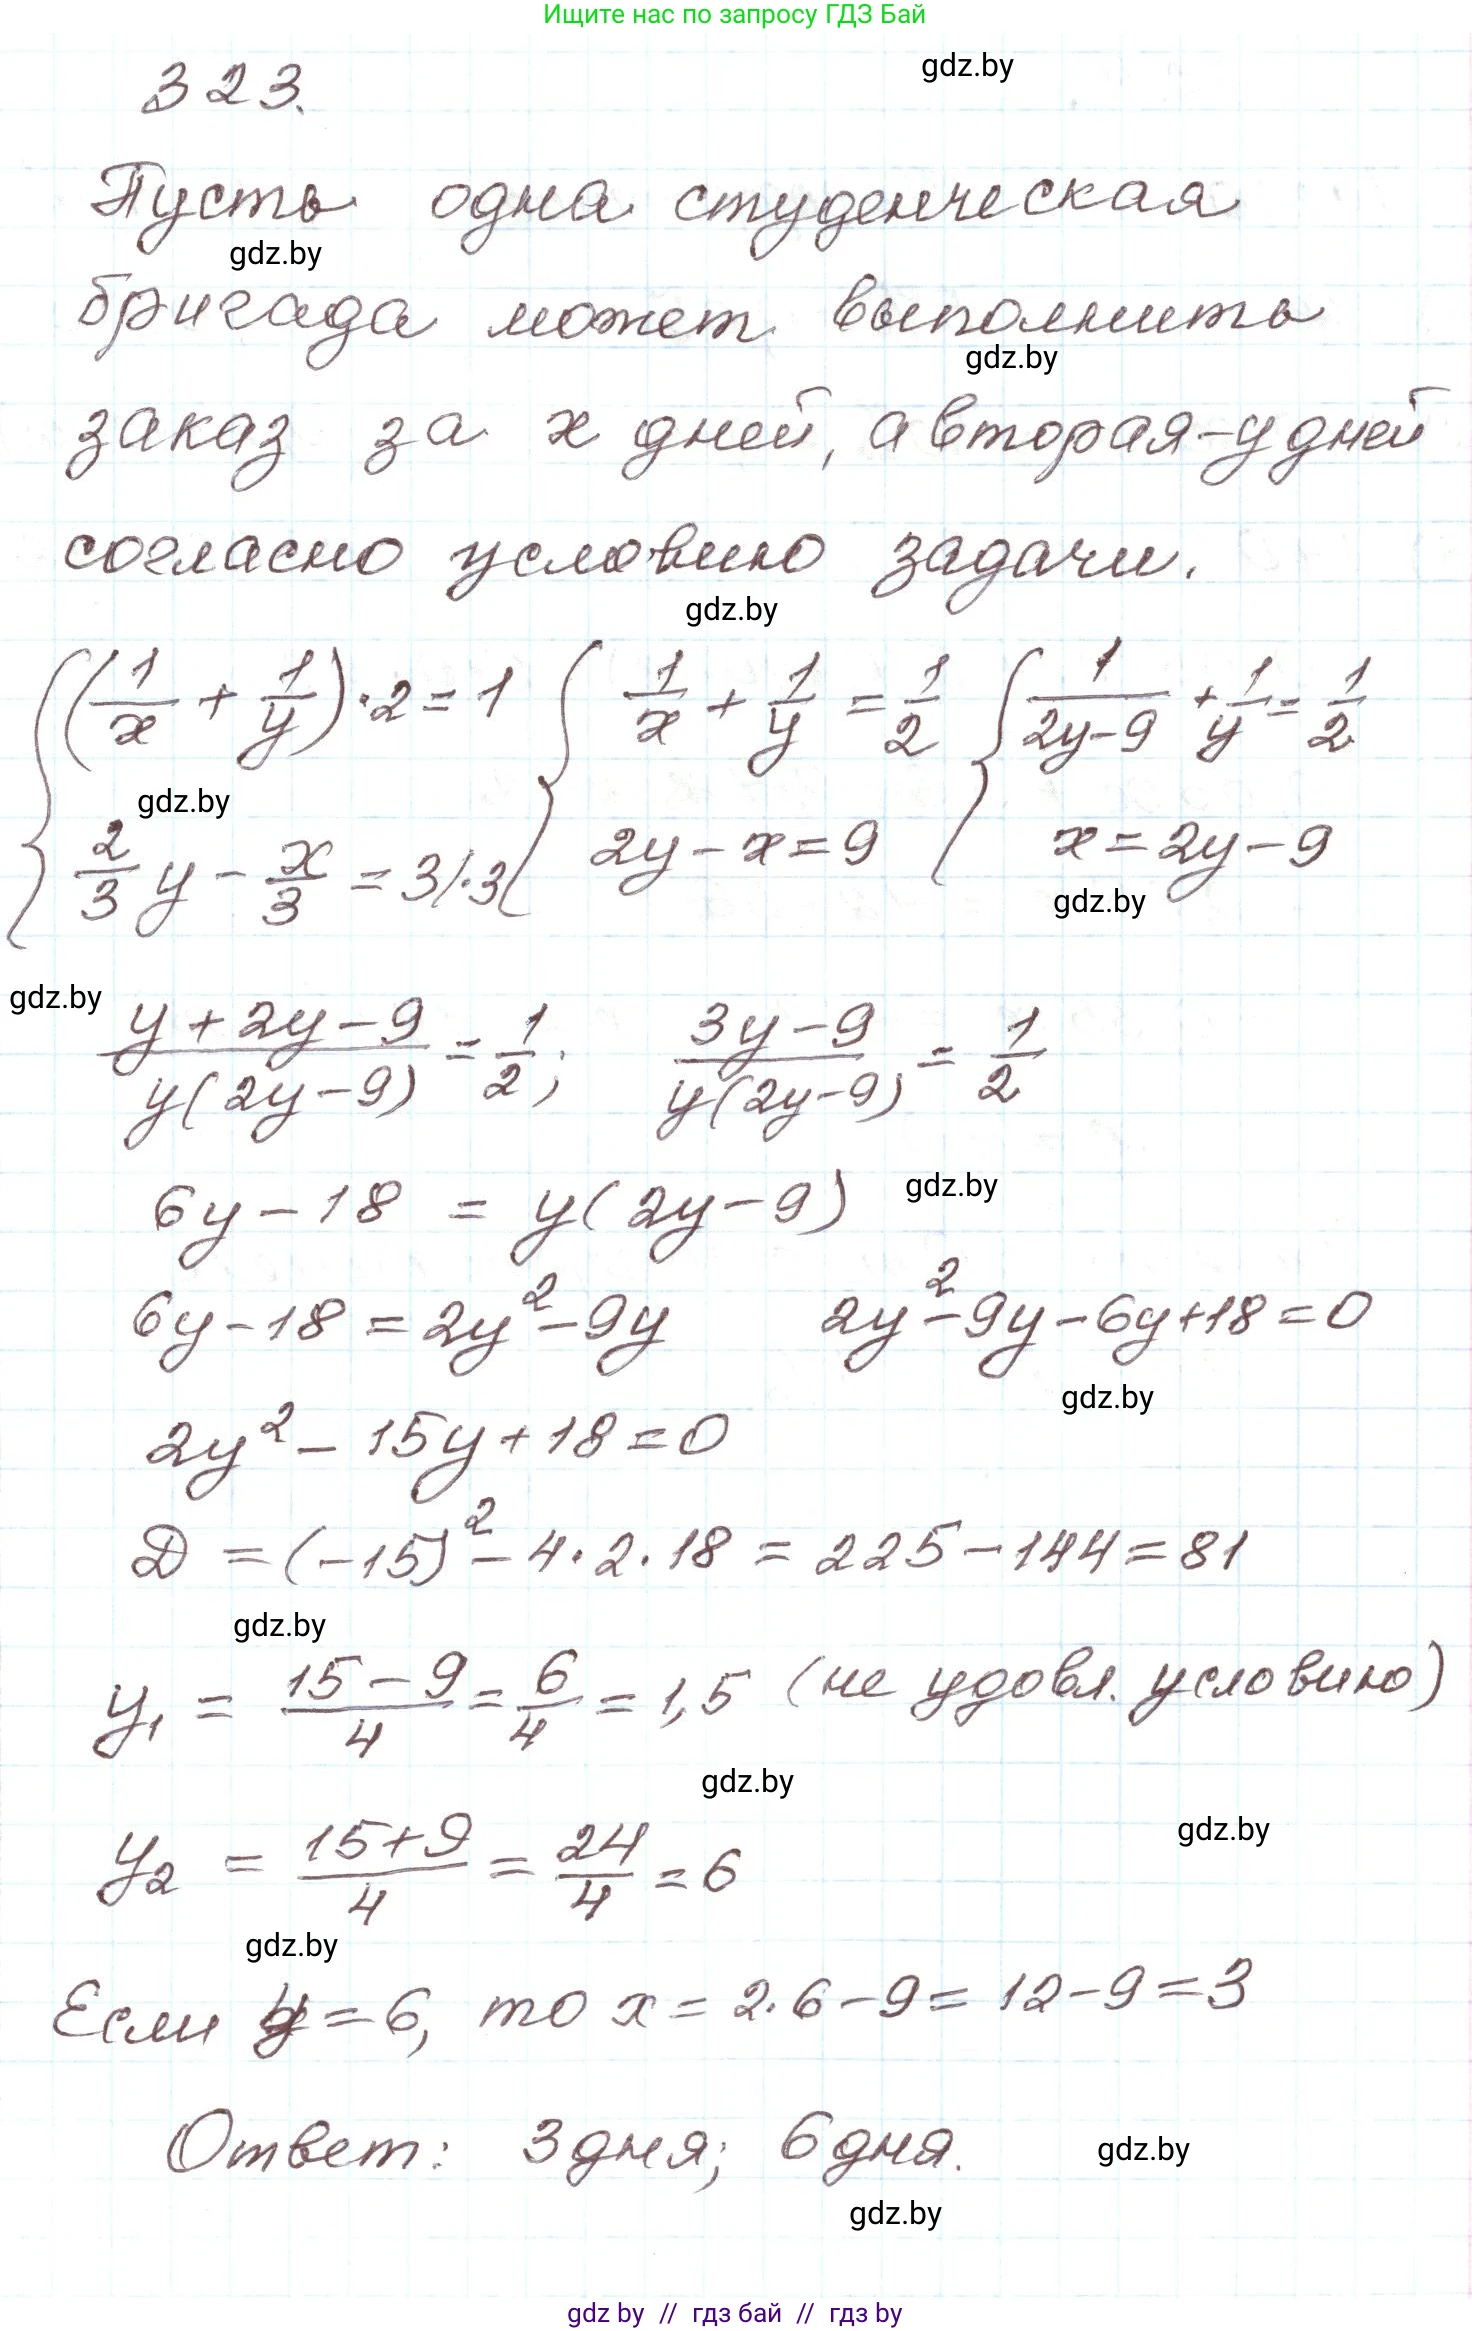 Ищите нас по запросу ГДЗ Бай
323.
gdz.by
Пусть одна студенческая
gdz.by
бригада может выполнить
gdz.by
заказ за x дней, а вторая - y дней
согласно условию задачи.
gdz.by
{(1/x + 1/y)·2=1 {1/x + 1/y = 1/2 {1/(2y-9) + 1/y = 1/2
gdz.by
2/3 y - x/3 = 3 |·3 2y - x = 9 x = 2y - 9
gdz.by
gdz.by
(y+2y-9)/(y(2y-9)) = 1/2; (3y-9)/(y(2y-9)) = 1/2
6y - 18 = y(2y-9)
gdz.by
6y - 18 = 2y² - 9y 2y² - 9y - 6y + 18 = 0
gdz.by
2y² - 15y + 18 = 0
D = (-15)² - 4·2·18 = 225 - 144 = 81
gdz.by
y₁ = (15-9)/4 = 6/4 = 1,5 (не удовл. условию)
gdz.by
gdz.by
y₂ = (15+9)/4 = 24/4 = 6
gdz.by
Если y = 6, то x = 2·6 - 9 = 12 - 9 = 3
Ответ: 3 дня; 6 дня.
gdz.by
gdz.by
gdz by // гдз бай // гдз by